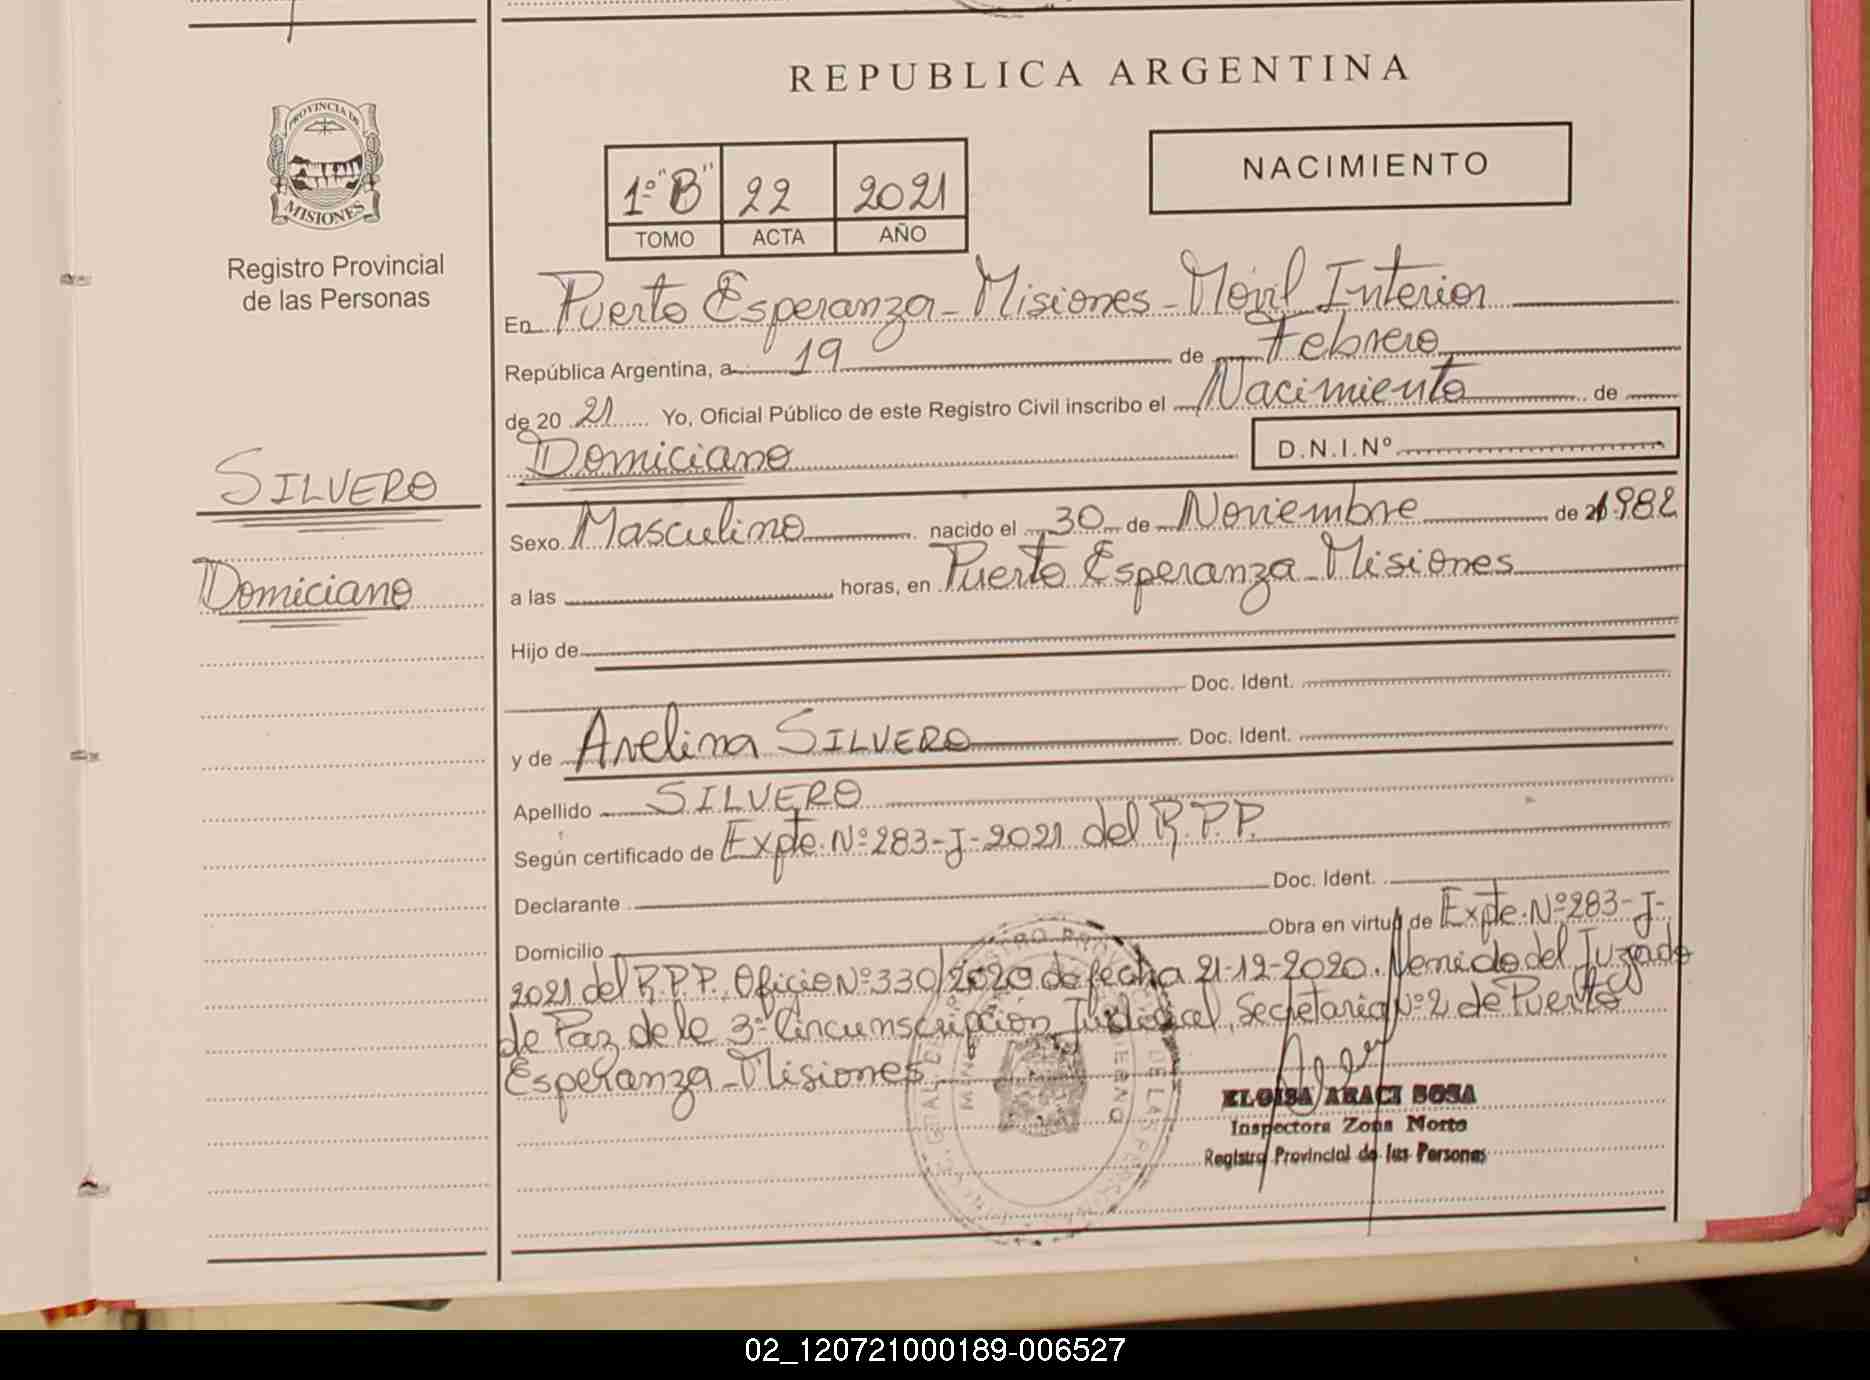 REPUBLICA ARGENTINA
PROVINCIA DE
MISIONES
Registro Provincial
de las Personas
1º "B" 22 2021
TOMO ACTA AÑO
NACIMIENTO
En Puerto Esperanza - Misiones - Móvil Interior
República Argentina, a 19 de Febrero
de 20 21 Yo, Oficial Público de este Registro Civil inscribo el Nacimiento de
Domiciano D.N.I.Nº
SILVERO
Domiciano
Sexo Masculino nacido el 30 de Noviembre de 1982
a las horas, en Puerto Esperanza - Misiones
Hijo de
Doc. Ident.
y de Avelina SILVERO Doc. Ident.
Apellido SILVERO
Según certificado de Expte. Nº 283-J-2021 del R.P.P.
Declarante Doc. Ident.
Domicilio Obra en virtud de Expte. Nº 283-J-
2021 del R.P.P. Oficio Nº 330/2020 de fecha 21-12-2020. Venido del Juzgado
de Paz de la 3º Circunscripción Judicial, Secretaria Nº 2 de Puerto
Esperanza - Misiones
ELOISA ARACI SOSA
Inspectora Zona Norte
Registro Provincial de las Personas
02_120721000189-006527